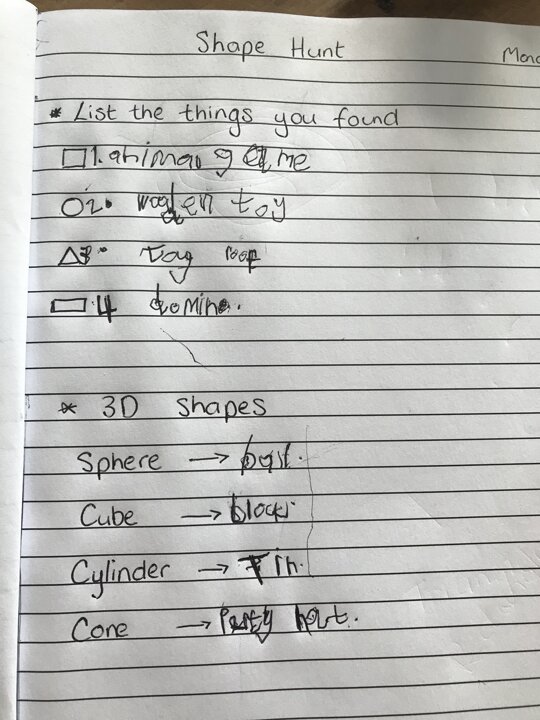 Shape Hunt
* List the things you found
1. animal game
2. wooden toy
3. toy roof
4 domino.
* 3D Shapes
Sphere → ball.
Cube → block
Cylinder → Tin.
Cone → party hat.